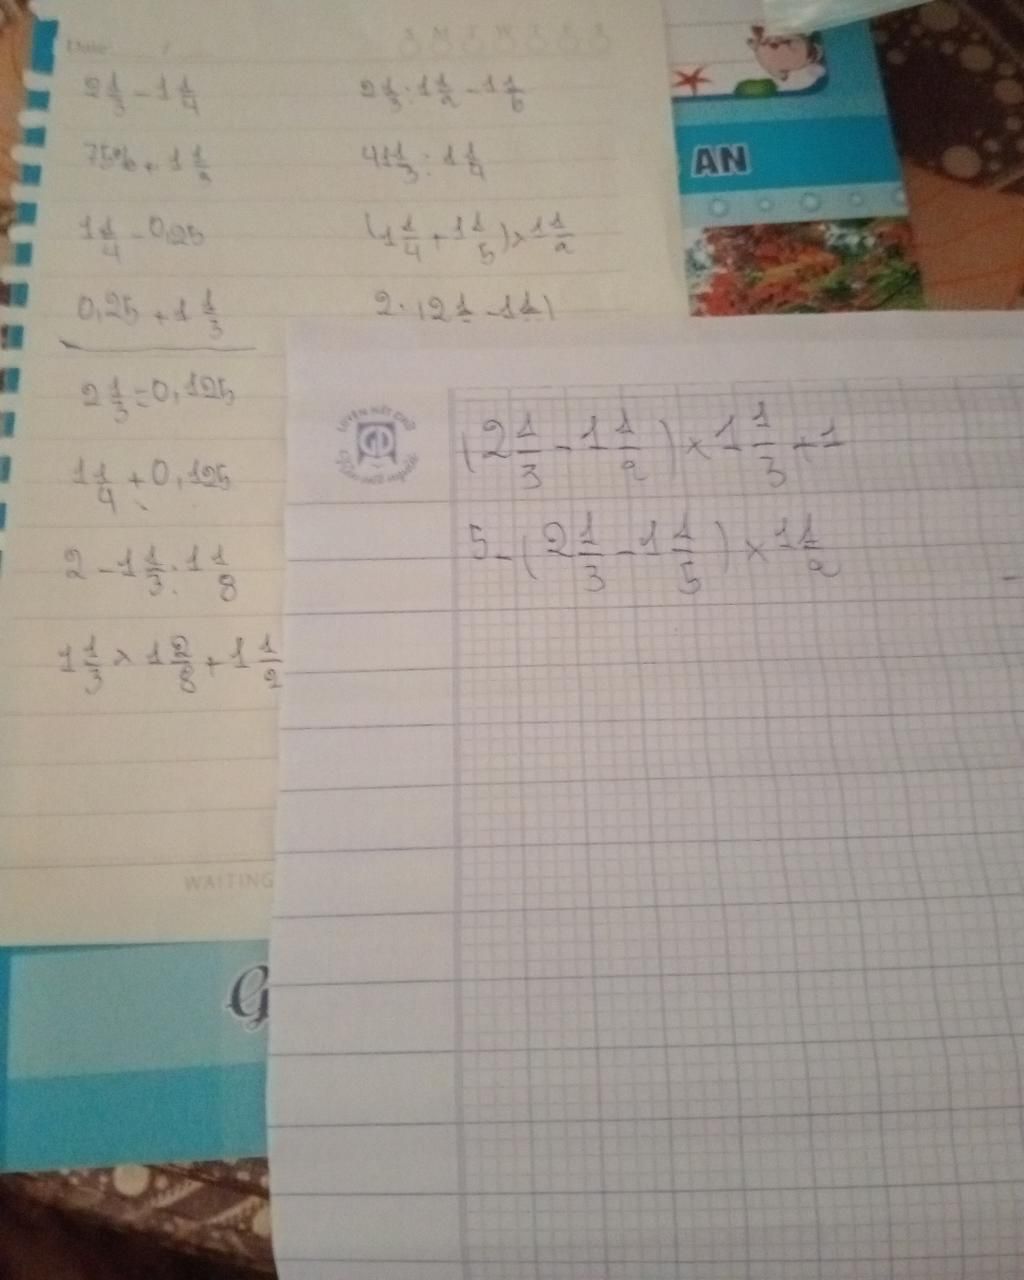 Date / S M T W T F S
2 1/3 - 1 1/4
75% + 1 1/2
1 1/4 - 0,25
0,25 + 1 1/3
2 1/3 = 0,125
1 1/4 + 0,125
2 - 1 1/3 : 1 1/8
1 1/3 × 1 2/8 + 1 1/2
2 1/3 : 1 1/2 - 1 1/6
41 1/3 : 1 1/4
(1 1/4 + 1 1/5) × 1 1/2
WAITING
AN
G
LUYỆN NÉT CHỮ
(2 1/3 - 1 1/2) × 1 1/3 + 1
5 - (2 1/3 - 1 1/5) × 1 1/2